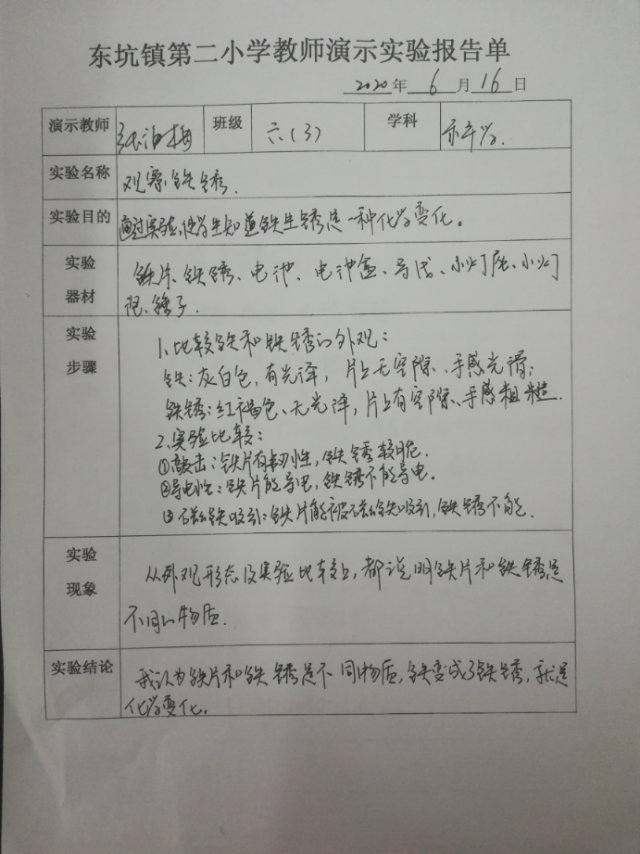 东坑镇第二小学教师演示实验报告单
2020年 6 月 16 日
演示教师 班级 六(3) 学科 科学
实验名称 观察铁锈.
实验目的 通过实验,使学生知道铁生锈是一种化学变化。
实验器材 铁片、铁锈、电池、电池盒、导线、小灯座、小灯
泡、锤子.
实验步骤 1、比较铁和铁锈的外观:
铁:灰白色,有光泽,片上无空隙、手感光滑;
铁锈:红褐色、无光泽,片上有空隙、手感粗糙.
2、实验比较:
①敲击:铁片有韧性,铁锈较脆.
②导电性:铁片能导电,铁锈不能导电.
③磁铁吸引:铁片能被磁铁吸引,铁锈不能.
实验现象 从外观形态及实验比较上,都说明铁片和铁锈是
不同的物质.
实验结论 我认为铁片和铁锈是不同物质,铁变成了铁锈,就是
化学变化.